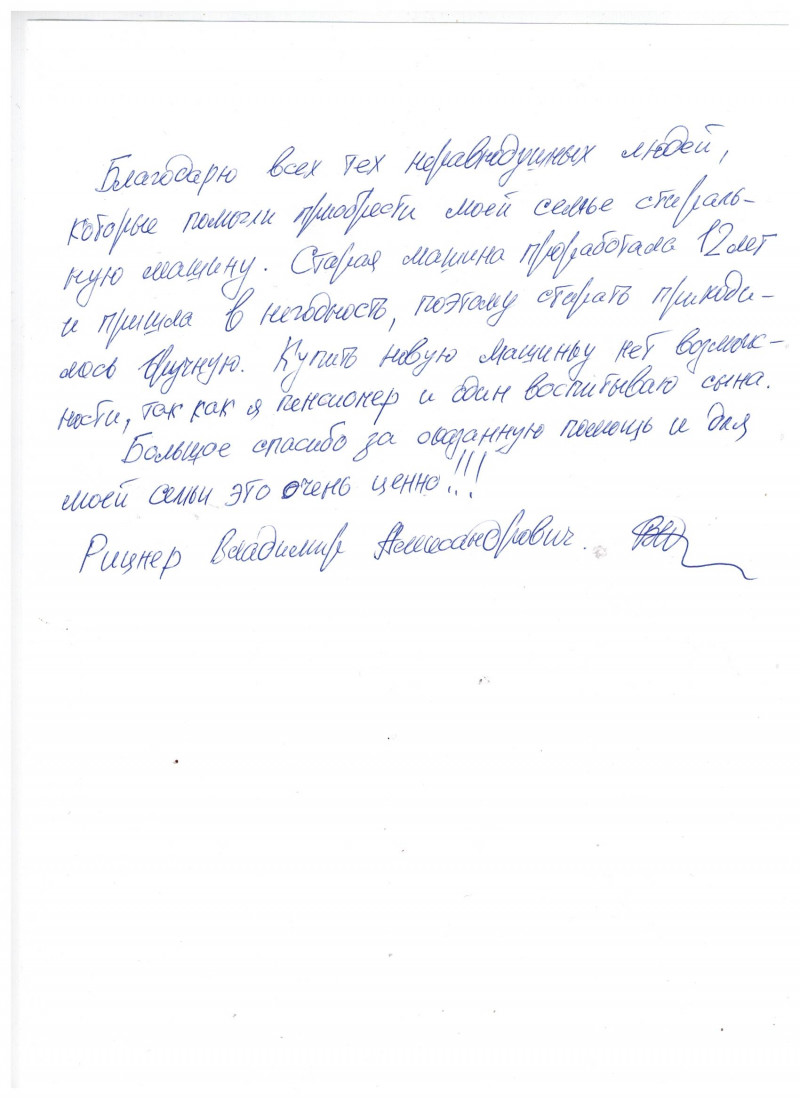 Благодарю всех тех неравнодушных людей,
которые помогли приобрести моей семье стираль-
ную машину. Старая машина проработала 12 лет
и пришла в негодность, поэтому стирать приходи-
лось вручную. Купить новую машину нет возмож-
ности, так как я пенсионер и один воспитываю сына.
Большое спасибо за оказанную помощь и для
моей семьи это очень ценно!!!
Рицнер Владимир Александрович.